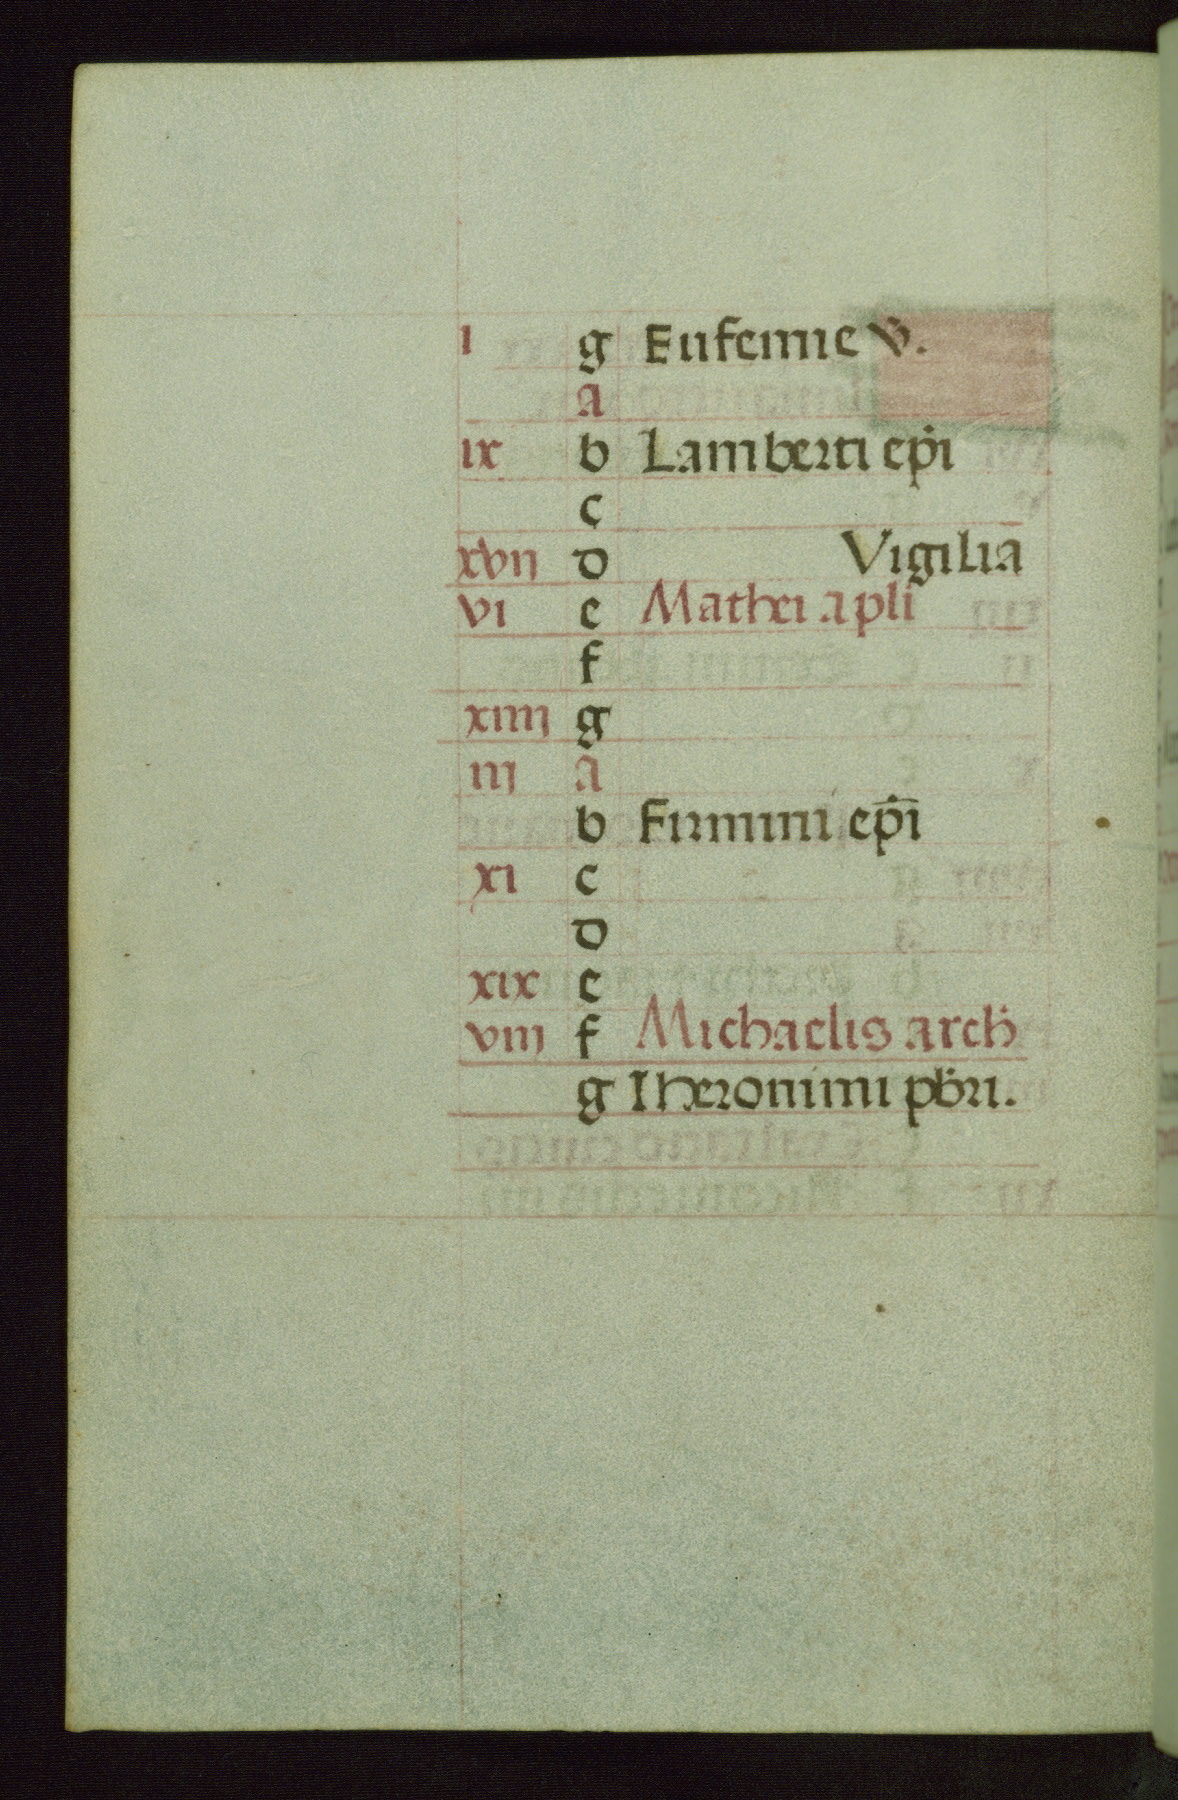 I g Eufemie v̄.
A
ix b Lamberti ep̄i
c
xvij d Vigilia
vi e Mathei apli
f
xiiij g
iij A
b Firmini ep̄i
xi c
d
xix e
viij f Michaelis arch
g Iheronimi pb̄ri.